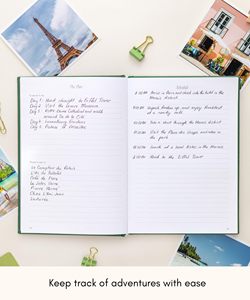 The Plan
Schedule
Day 1: Head straight to Eiffel Tower
Day 2: Visit the Louvre Museum
Day 3: Notre Dame Cathedral and walk
around Île de la Cité
Day 4: Luxembourg Gardens
Day 5: Palace of Versailles
Le Comptoir du Relais
L'As du Fallafel
Café de Flore
Le Jules Verne
Pierre Hermé
Chez L'Ami Jean
Ladurée
Arrive in Paris and check into the hotel in the
Marais district
Unpack, freshen up, and enjoy breakfast
at a nearby café
Take a stroll through the Marais district
Visit the Place des Vosges and relax in
the park
Lunch at a local bistro in the Marais
Head to the Eiffel Tower
Keep track of adventures with ease